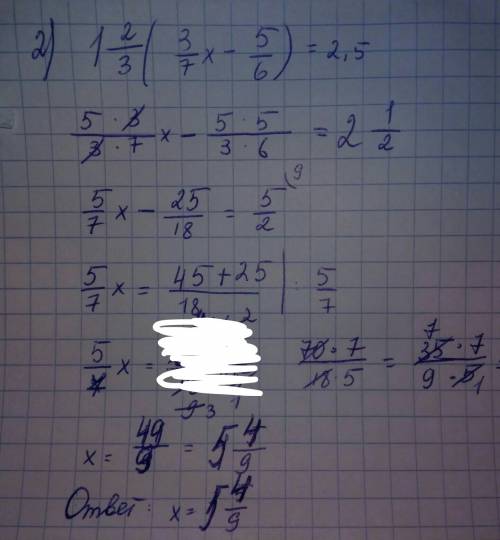 2) 1 2/3 ( 3/7 x - 5/6 ) = 2,5
5 · 3 / 3 · 7 x - 5 · 5 / 3 · 6 = 2 1/2
5/7 x - 25/18 = 5/2 (9
5/7 x = 45 + 25 / 18 | : 5/7
5/7 x = 70 · 7 / 18 5 = 7 35 · 7 / 9 · 5 1 =
9 3 1
x = 49/9 = 5 4/9
Ответ: x = 5 4/9